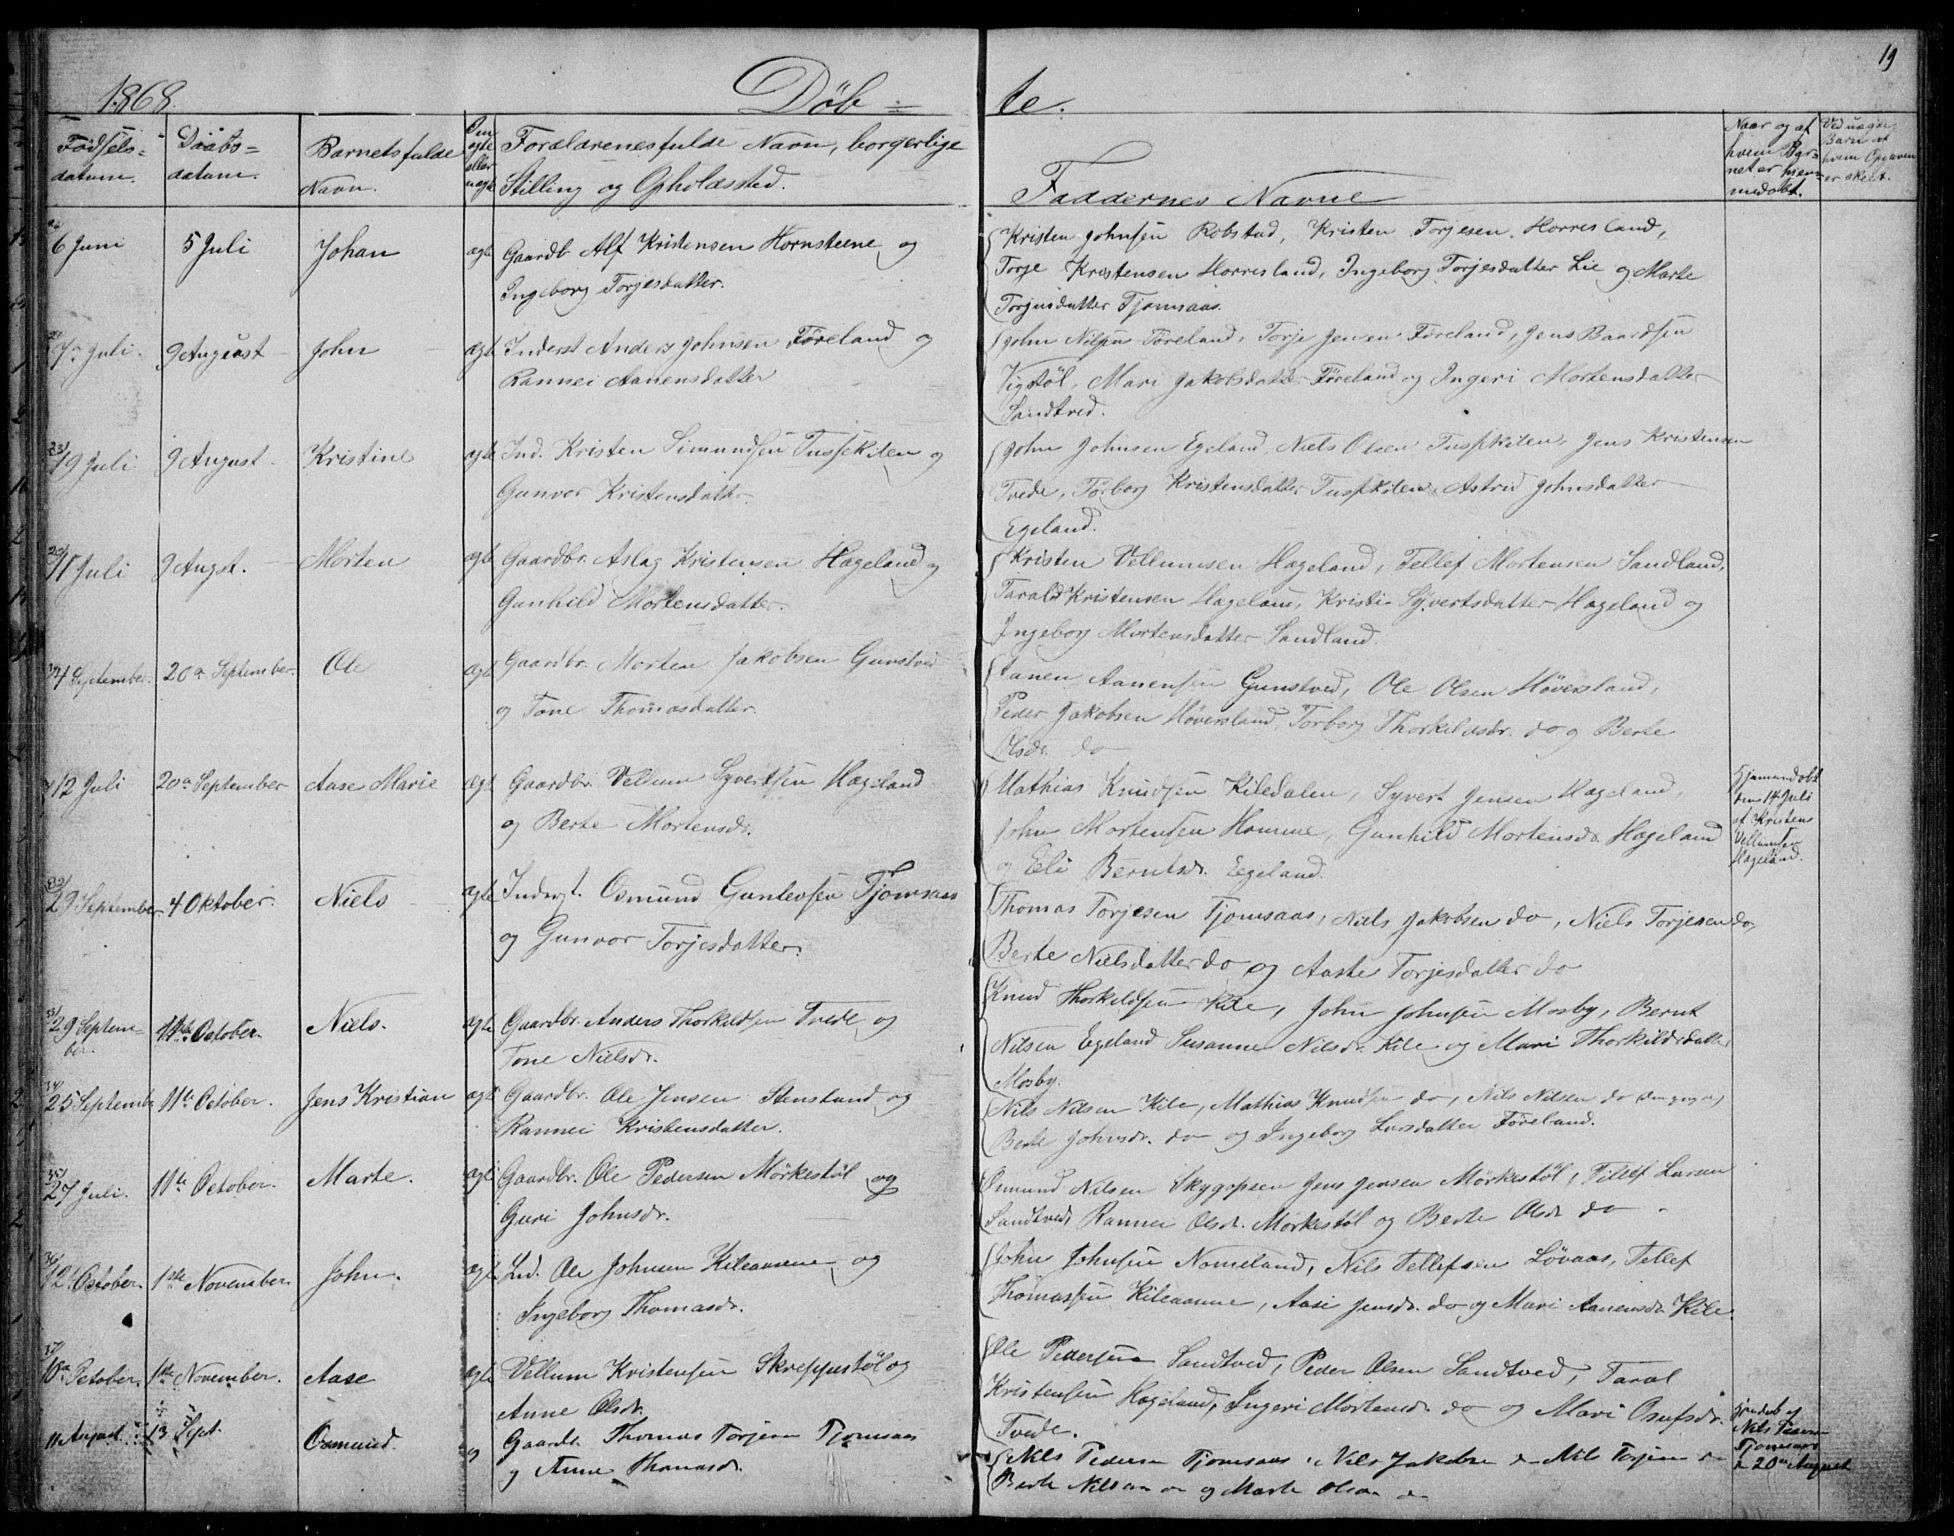 19
1868.
Döb=
te.
Födsels=
datum.
Daabs=
datum.
Barnets fulde
Navn.
Om
ægte
eller
uægte
Forældrenes fulde Navn, borgerlige
Stilling og Opholdssted.
Faddernes Navne
Naar og af
hvem Bar=
net er hjem=
medöbt.
6 Juni
5 Juli
Johan
ægte
Gaardb. Alf Kristensen Hornsteene og
Ingeborg Torjesdatter.
Kristen Johnsen Robstad, Kristen Torjesen Horresland,
Torje Kristensen Horresland, Ingeborg Torjesdatter Lie og Marte
Torjusdatter Tjomsaas.
Juli.
9 August
John
ægte
Inderst Anders Johnsen Föreland og
Rannei Aanensdatter
John Nilsen Föreland, Torje Jensen Föreland, Jens Baardsen
Vigstöl, Mari Jakobsdatter Föreland og Ingeri Mortensdatter
Sandtved.
19 Juli
9 August
Kristine
ægte
Ind. Kristen Simundsen Tussekilen og
Gunvor Kristensdatter
John Johnsen Egeland, Niels Olsen Tuspkilen, Jens Kristensen
Tvede, Torborg Kristensdatter Tuspkilen, Astrid Johnsdatter
Egeland.
Juli
9 Augst.
Morten
ægte
Gaardbr. Aslag Kristensen Hægeland og
Gunhild Mortensdatter.
Kristen Vellumsen Hægeland, Tellef Mortensen Sandland,
Tarald Kristensen Hægeland, Kristi Syvertsdatter Hægeland og
Ingeborg Mortensdatter Sandland.
4 September.
20de September.
Ole
ægte
Gaardbr. Morten Jakobsen Gunstved
og Tone Thomasdatter.
Aanen Aanensen Gunstved, Ole Olsen Höversland,
Peder Jakobsen Höversland, Torborg Thorkildsdr. do og Berte
Olsdr. do
12 Juli
20de September
Aase Marie
ægte
Gaardbr. Vellum Syvertsen Hægeland
og Berte Mortensdr.
Mathias Knudsen Kiledalen, Syvert Jensen Hægeland,
John Mortensen Homme, Gunhild Mortensdr. Hægeland
og Eli Berntsdr. Egeland.
Hjemmedöbt
den 14 Juli
af Kristen
Vellumsen
Hægeland.
29 September
4 Oktober.
Niels
ægte
Inderst. Osmund Gunlevsen Tjomsaas
og Gunvor Torjesdatter.
Thomas Torjesen Tjomsaas, Niels Jakobsen do, Niels Torjesen do,
Berte Nielsdatter do og Aaste Torjesdatter do
29 Septem=
ber.
11te October.
Niels.
ægte
Gaardbr. Anders Thorkildsen Tvede og
Tone Nielsdr.
Knud Thorkildsen Kile, John Johnsen Mosby, Bernt
Nilsen Egeland Susanne Nilsdr. Kile og Mari Thorkildsdatter
Mosby.
25 Septemb.
11te October.
Jens Kristian
ægte
Gaardbr. Ole Jensen Stensland og
Rannei Kristensdatter.
Nils Nilsen Kile, Mathias Knudsen do, Nils Nilsen do
Berte Johnsdr. do og Ingeborg Larsdatter Föreland.
27 Juli.
11te October.
Marte.
ægte
Gaardbr. Ole Pedersen Mörkestöl og
Guri Johnsdr.
Osmund Nilsen Jens Jensen Mörkestöl, Tellef Larsen
Sandtved, Rannei Olsdr. Mörkestöl og Berte Olsdr. do
12 October.
1ste November.
John.
ægte
Ind. Ole Johnsen Kileaasene og
Ingeborg Thomasdr.
John Johnsen Nomeland, Nils Tellefsen Lövaas, Tellef
Thomassen Kileaanne, Aase Jensdr. do og Mari Aanensdr. Kile.
October.
1ste November.
Aase
ægte
Vellum Kristensen Skreppestöl og
Anne Olsdr.
Ole Pedersen Sandtved, Peder Olsen Sandtved, Taral
Kristensen Hægeland, Ingeri Mortensdr. do og Mari Osufsdr.
Tvede.
11 August
13 Sept.
Osmund.
Gaardb. Thomas Torjesen Tjomsaas
og Anne Thomasdr.
Nils Pedersen Tjomsaas, Nils Jakobsen Nils Torjesen
Berte Nilsen og Marte Olsdr.
Nils
Tjomsaas
20de August